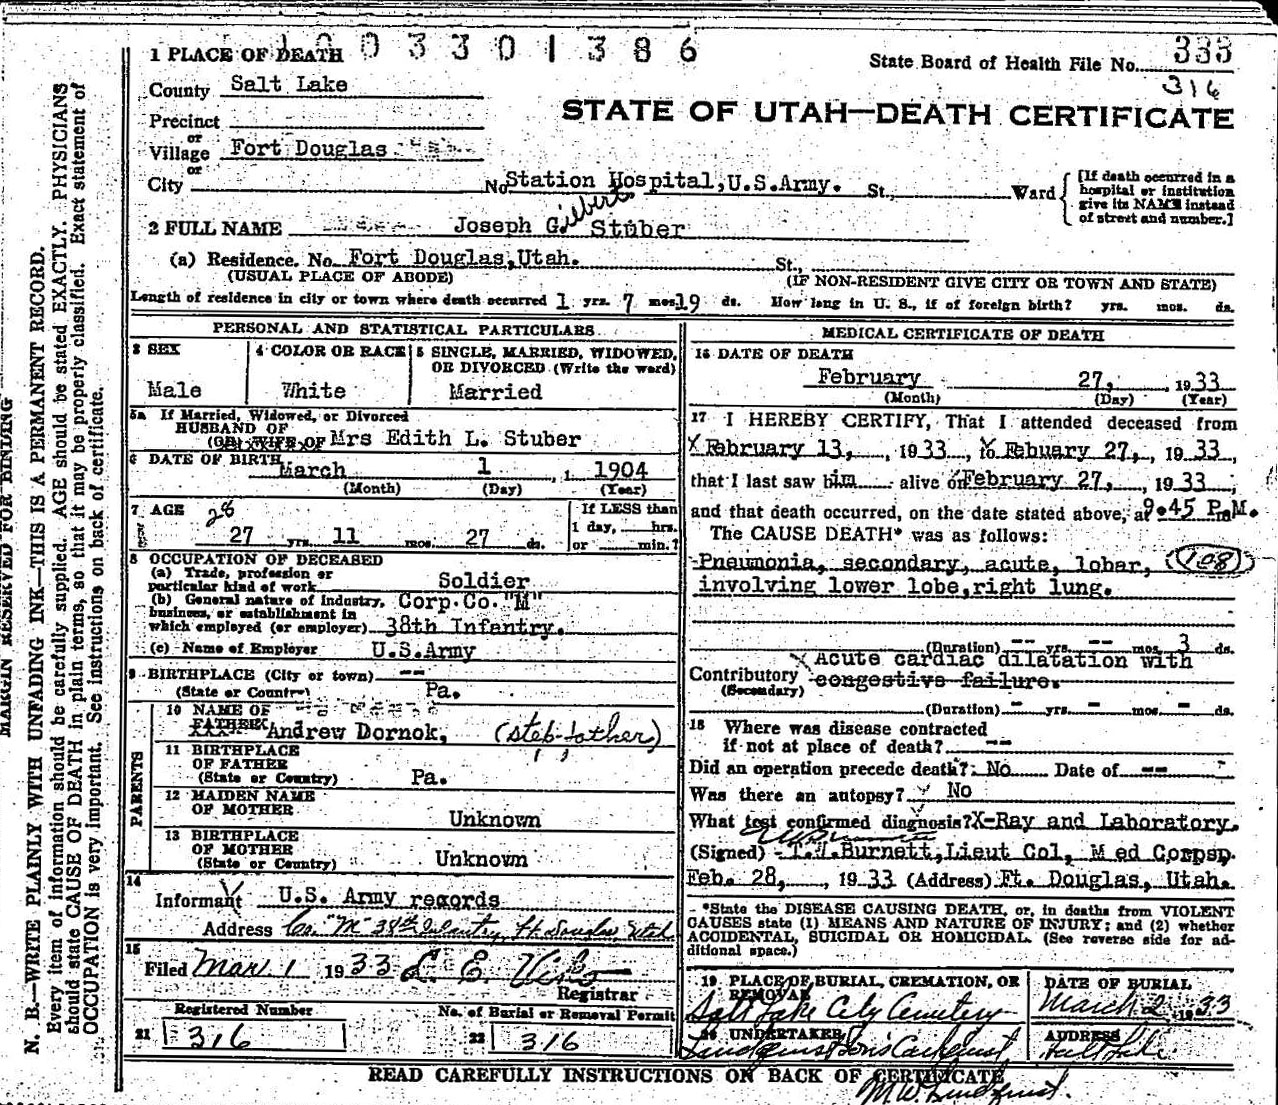 1 0 0 3 3 0 1 3 8 6
1 PLACE OF DEATH
State Board of Health File No. 333
316
County Salt Lake
STATE OF UTAH—DEATH CERTIFICATE
Precinct
or
Village Fort Douglas
or
City No Station Hospital,U.S.Army. St., Ward
[If death occurred in a hospital or institution give its NAME instead of street and number.]
Gilbert
2 FULL NAME Joseph G. Stuber
(a) Residence. No. Fort Douglas,Utah. St.,
(USUAL PLACE OF ABODE) (IF NON-RESIDENT GIVE CITY OR TOWN AND STATE)
Length of residence in city or town where death occurred 1 yrs. 7 mos. 19 ds. How long in U. S., if of foreign birth? yrs. mos. ds.
PERSONAL AND STATISTICAL PARTICULARS
3 SEX 4 COLOR OR RACE 5 SINGLE, MARRIED, WIDOWED, OR DIVORCED (Write the word)
Male White Married
5a If Married, Widowed, or Divorced
HUSBAND OF
(OR) WIFE OF Mrs Edith L. Stuber
6 DATE OF BIRTH March 1, 1904
(Month) (Day) (Year)
7 AGE 28
27 yrs. 11 mos. 27 ds.
If LESS than
1 day, hrs.
or min.?
8 OCCUPATION OF DECEASED
(a) Trade, profession or
particular kind of work Soldier
(b) General nature of industry, Corp.Co."M"
business, or establishment in
which employed (or employer) 38th Infantry.
(c) Name of Employer U.S.Army
9 BIRTHPLACE (City or town) --
(State or Country) Pa.
PARENTS
10 NAME OF
FATHER Andrew Dornok, (step-father)
11 BIRTHPLACE
OF FATHER
(State or Country) Pa.
12 MAIDEN NAME
OF MOTHER Unknown
13 BIRTHPLACE
OF MOTHER
(State or Country) Unknown
14
Informant U.S. Army records
Address Co. "M" 38th Infantry, Ft Douglas, Utah
15
Filed Mar. 1 1933
Registrar
Registered Number No. of Burial or Removal Permit
21 316 22 316
MEDICAL CERTIFICATE OF DEATH
16 DATE OF DEATH
February 27, 1933
(Month) (Day) (Year)
17 I HEREBY CERTIFY, That I attended deceased from
February 13, 1933, to Febuary 27, 1933,
that I last saw him alive on February 27, 1933,
and that death occurred, on the date stated above, at 9.45 P.M.
The CAUSE DEATH* was as follows:
Pneumonia, secondary, acute, lobar, (108)
involving lower lobe,right lung.
(Duration) -- yrs. -- mos. 3 ds.
Contributory Acute cardiac dilatation with
(Secondary) congestive failure.
(Duration) - yrs. - mos. - ds.
18 Where was disease contracted
if not at place of death? --
Did an operation precede death? No Date of --
Was there an autopsy? No
What test confirmed diagnosis? X-Ray and Laboratory.
(Signed) Burnett,Lieut Col, Med Corps
Feb. 28, 1933 (Address) Ft. Douglas, Utah.
*State the DISEASE CAUSING DEATH, or, in deaths from VIOLENT
CAUSES state (1) MEANS AND NATURE OF INJURY; and (2) whether
ACCIDENTAL, SUICIDAL OR HOMICIDAL. (See reverse side for additional space.)
19 PLACE OF BURIAL, CREMATION, OR REMOVAL DATE OF BURIAL
Salt Lake City Cemetery March 2 1933
20 UNDERTAKER ADDRESS
Salt Lake
READ CAREFULLY INSTRUCTIONS ON BACK OF CERTIFICATE
MARGIN RESERVED FOR BINDING
N. B.—WRITE PLAINLY WITH UNFADING INK—THIS IS A PERMANENT RECORD.
Every item of information should be carefully supplied. AGE should be stated EXACTLY. PHYSICIANS
should state CAUSE OF DEATH in plain terms, so that it may be properly classified. Exact statement of
OCCUPATION is very important. See instructions on back of certificate.